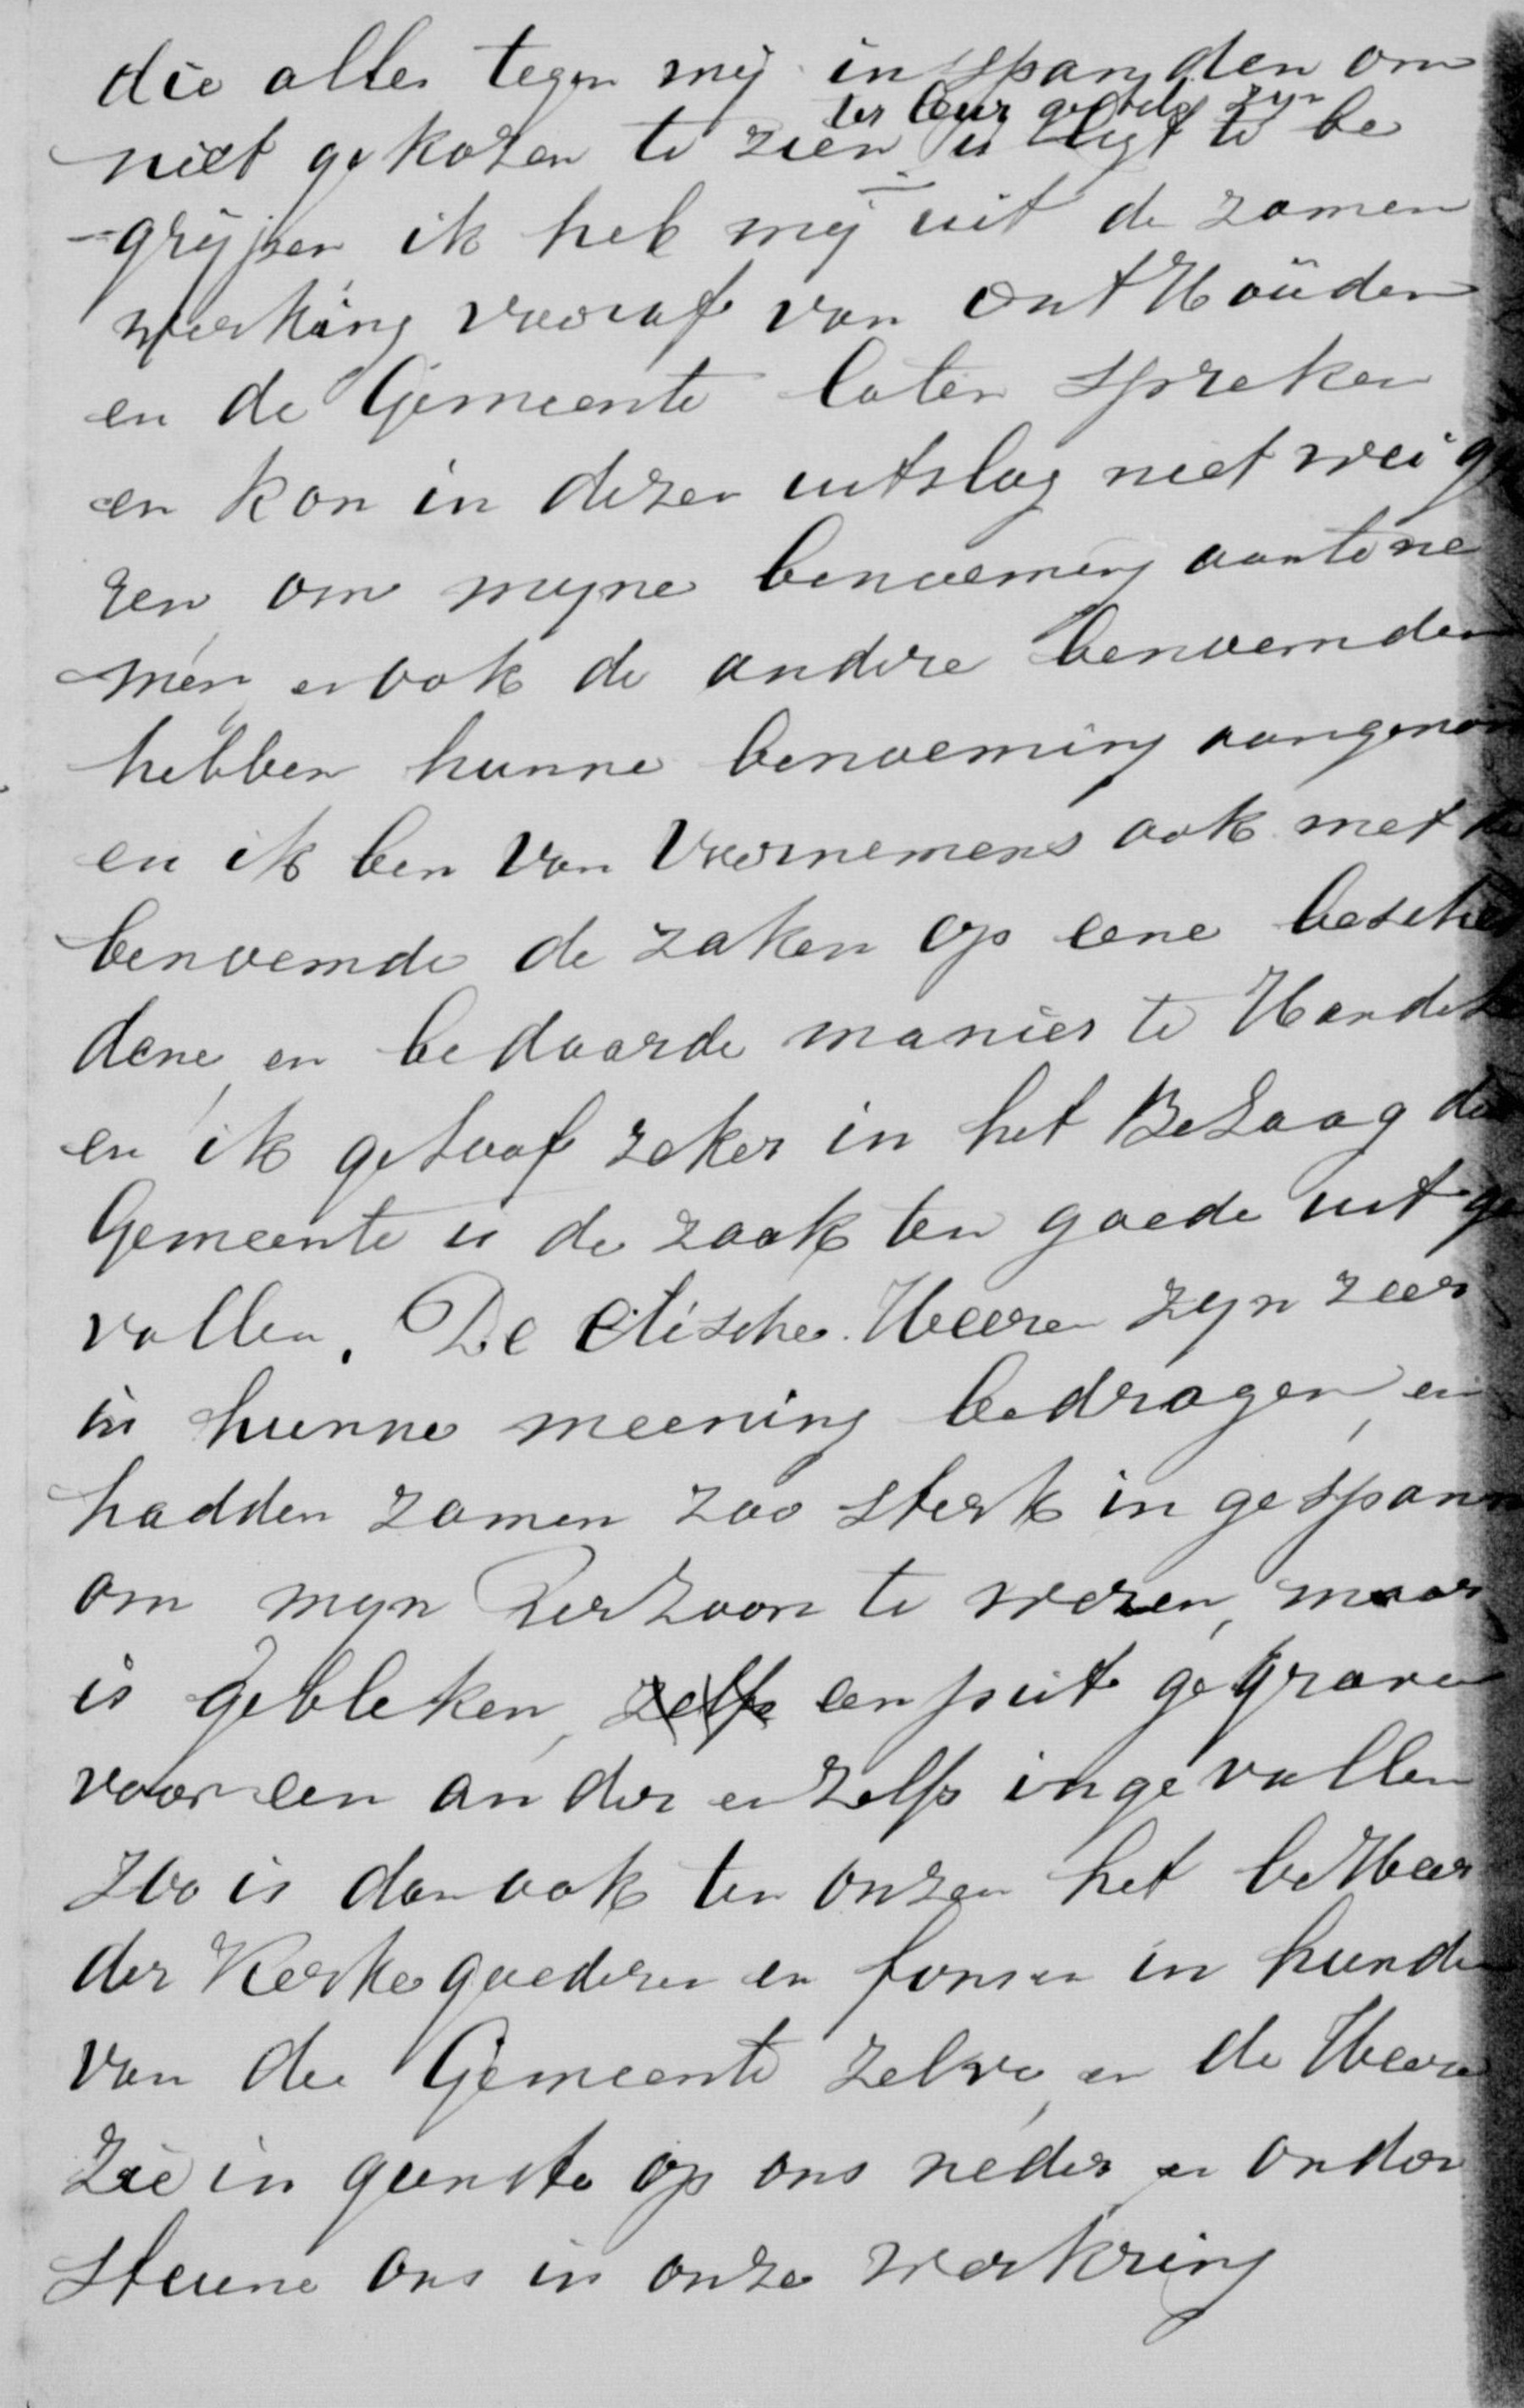 die alles tegen mij inspanden om
ter leur gesteld zyn
niet gekozen te zien is ligt te be
-grijpen ik heb mij uit de zamen
werking vooraf van ontHouden
en de Gemeente laten spreken
en kon in dezen uitslag niet weige
ren om myne benoeming aante ne
men, en ook de andere benoemden
hebben hunne benoeming aangenom
en ik ben van Voornemens ook met de
benoemde de zaken op eene beschei
dene, en bedaarde manier te Handele
en ik geloof zeker in het Belaag der
Gemeente is de zaak ten goede uit ge
vallen. De Etische Heeren zyn zeer
in hunne meening bedrogen, en
hadden zamen zoo sterk in gespann
om myn Perzoon te weren, maar
is gebleken, zelfs een put gegraven
voor een ander en zelfs ingevallen
zoo is dan ook ten onzen het beHeer
der Kerke goederen en fonsen in handen
van de Gemeente zelve, en de Heere
Zie in gunste op ons neder en onder
steune ons in onze werkring